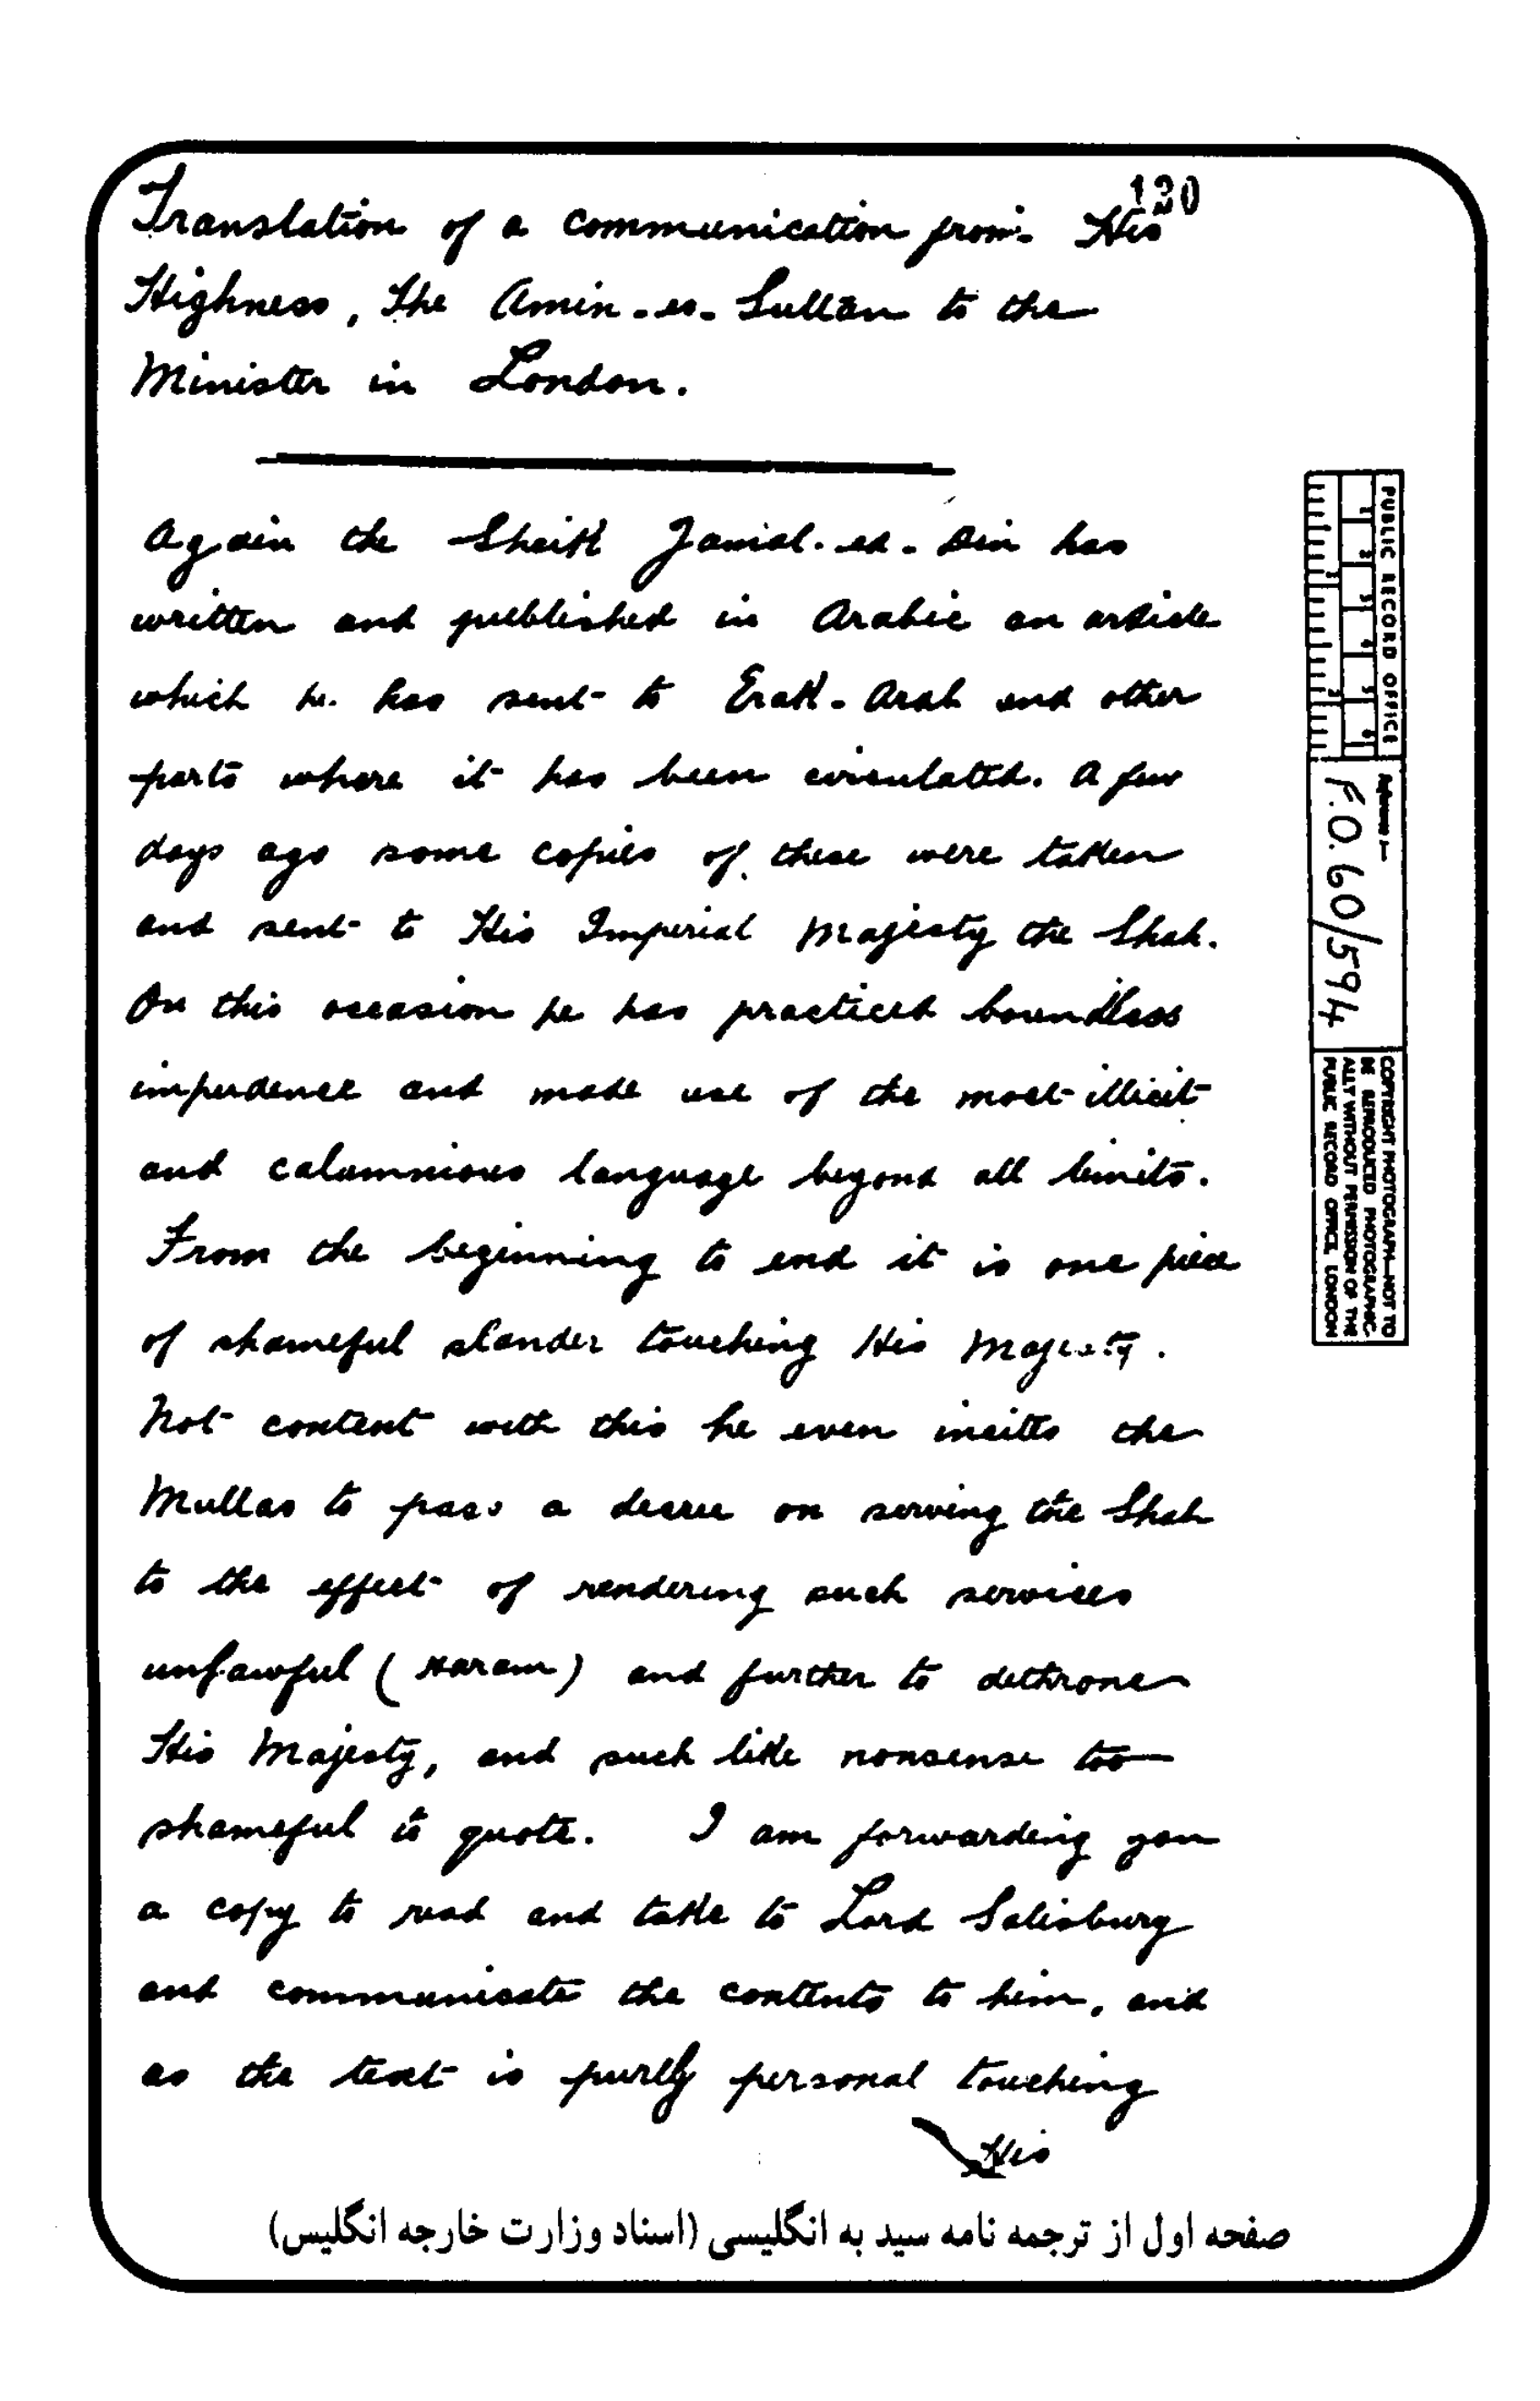 120
Translation of a communication from His
Highness, The Amin-es-Sultan to the
Minister in London.
Again the Sheikh Jamal-ed-Din has
written and published in Arabic an article
which he has sent to Erak-Arab and other
parts where it has been circulated. A few
days ago some copies of these were taken
and sent to His Imperial Majesty the Shah.
On this occasion he has practiced boundless
impudence and made use of the most illicit
and calumnious language beyond all limits.
From the beginning to end it is one piece
of shameful slander touching His Majesty.
Not content with this he even incites the
Mullas to pass a decree on serving the Shah
to the effect of rendering such services
unlawful (Haram) and further to dethrone
His Majesty, and such like nonsense too
shameful to quote. I am forwarding you
a copy to read and take to Lord Salisbury
and communicate the contents to him, and
as the text is purely personal touching
His
صفحه اول از ترجمه نامه سید به انگلیسی (اسناد وزارت خارجه انگلیس)
PUBLIC RECORD OFFICE
Reference :-
F.O. 60/594
COPYRIGHT PHOTOGRAPH-NOT TO
BE REPRODUCED PHOTOGRAPHIC-
ALLY WITHOUT PERMISSION OF THE
PUBLIC RECORD OFFICE, LONDON